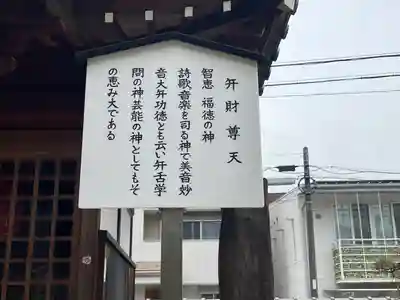 弁財尊天
智恵 福徳の神
詩歌音楽を司る神で美音妙
音大弁功徳とも云い弁舌学
問の神芸能の神としてもそ
の恵み大である